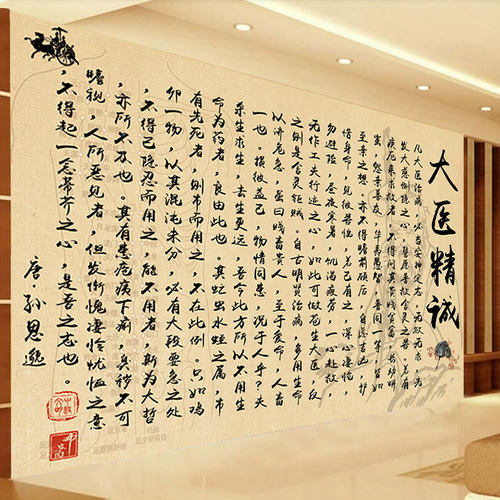 大医精诚
凡大医治病，必当安神定志，无欲无求，先
发大慈恻隐之心，誓愿普救含灵之苦。若有
疾厄来求救者，不得问其贵贱贫富，长幼妍
蚩，怨亲善友，华夷愚智，普同一等，皆如
至亲之想，亦不得瞻前顾后，自虑吉凶，护
惜身命，见彼苦恼，若己有之，深心凄怆，
勿避险，昼夜寒暑，饥渴疲劳，一心赴救，
无作工夫行迹之心，如此可做苍生大医，反
之则是含灵巨贼。自古明贤治病，多用生命
以济危急，虽曰贱畜贵人，至于爱命，人畜
一也。损彼益己，物情同患，况于人乎？夫
杀生求生，去生更远。吾今此方所以不用生
命为药者，良由此也。其虻虫水蛭之属，市
有先死者，则市而用之，不在此例。只如鸡
卵一物，以其混沌未分，必有大段要急之处
，不得已隐忍而用之，能不用者，斯为大哲
，亦所不及也。其有患疮痍下痢，臭秽不可
瞻视，人所恶见者，但发惭愧凄怜忧恤之意
，不得起一念蒂芥之心，是吾之志也。
唐·孙思邈
足厥阴肝经
足少阴肾经